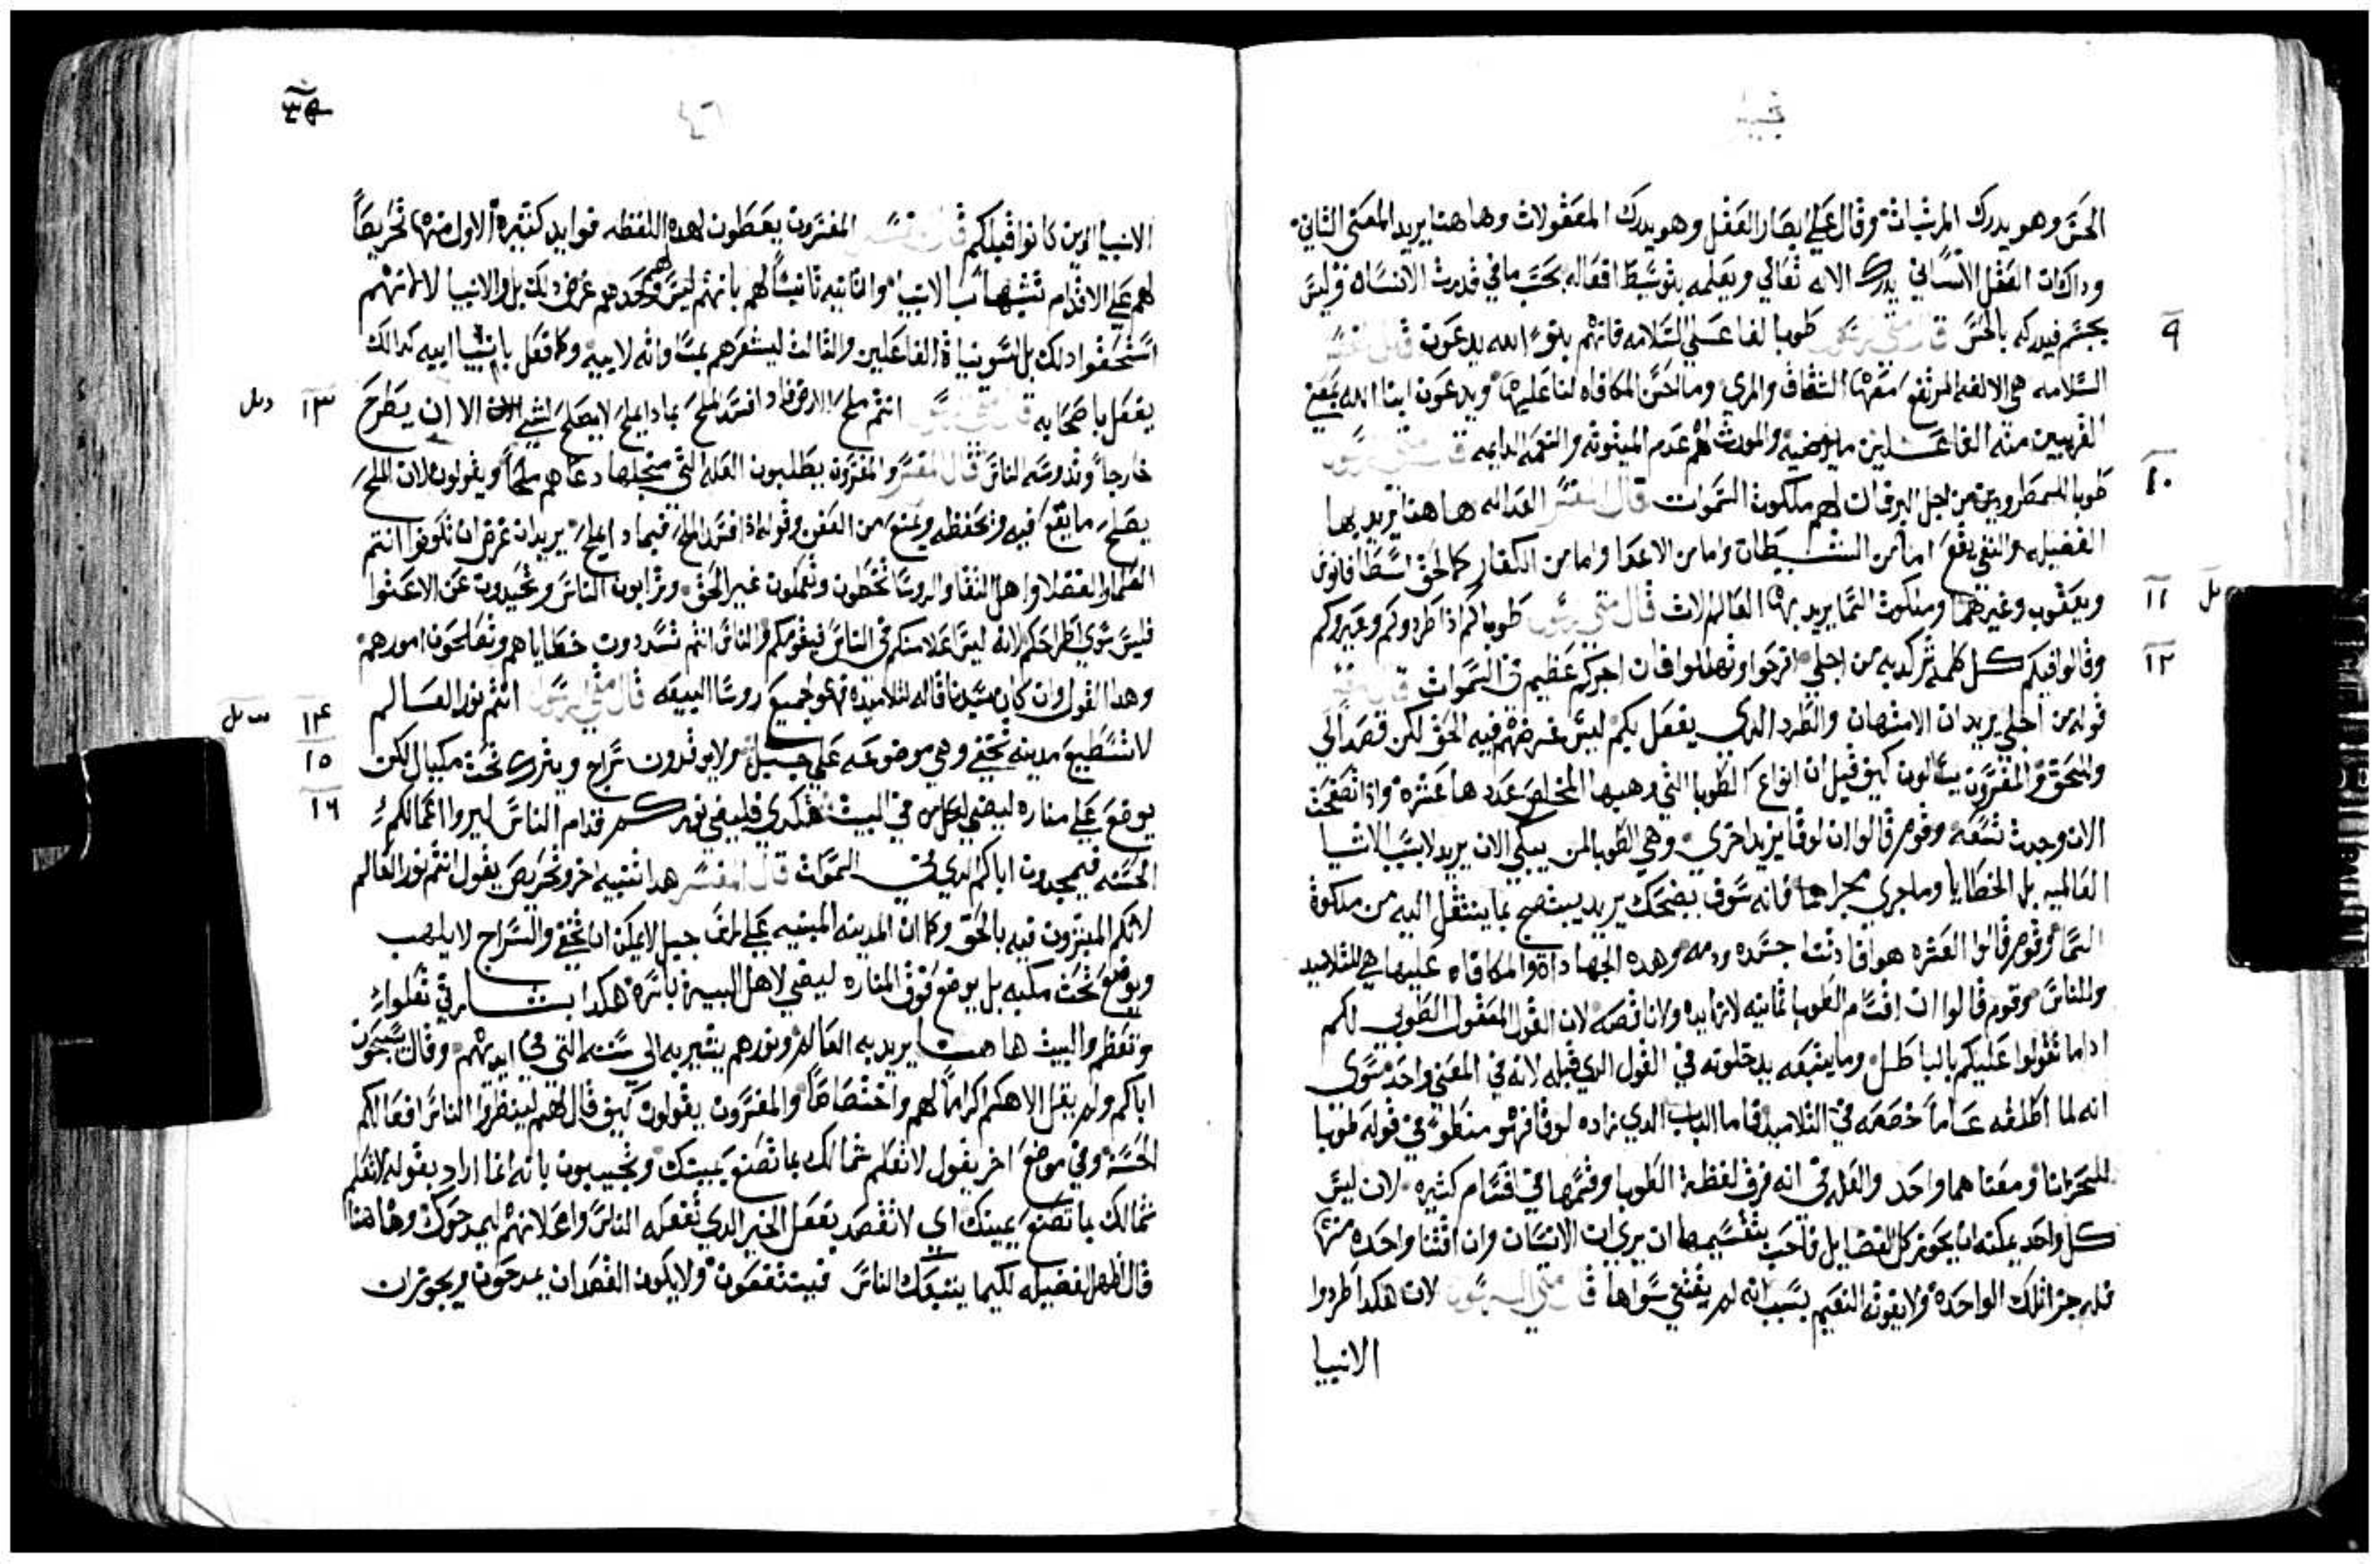 الحس وهو يدرك المرئيات وقال علي ابصار العقل وهو يدرك المعقولات وها هنا يريد المعنى الثاني
وداك ان العقل الانساني يدرك الاله تعالي ويعلمه بتوسط افعاله بحسب ما في قدرت الانسان وليس
٩
بجسم فيدركه بالحس قال متي الرسول طوبا لفاعلي السلامه فانهم بنو الله يدعون قال المفسر
السلامه هي الالفه المرتفع معها الشقاق والمري وما احسن المكافاه لنا عليها ويدعون ابنا الله بمعني
القريبين منه الفاعلين ما يرضيه والمورث لهم عدم الميتوته والنعمه الدايمه قال متي الرسول
١٠
طوبا للمطرودين من اجل البر فان لهم ملكوت السموات قال المفسر العداله ها هنا يريد بها
الفضيله والنفي يقع اما من الشيطان واما من الاعدا واما من الكفار كما لحق اسطافانوس
١١
ويعقوب وغيرهما وملكوت السما يريد بها العاليات قال متي الرسول طوباكم اذا طردوكم وعيروكم
١٢
وقالوا فيكم كل كلمه شر كدبه من اجلي افرحوا وتهللوا فان اجركم عظيم في السموات قال المفسر
قوله من اجلي يريد ان الامتهان والطرد الدي يفعل بكم ليس غرضهم فيه الحق لكن قصد الي
والمحق والمفسرون يسالون كيف قيل ان انواع الطوبا التي وهبها المخلص عددها عشره وادا تصفحت
الان وجدت تسعه وقوم قالوا ان لوقا يزيد اخري وهي الطوبا لمن يبكي الان يريد لا بسبب الاشيا
العالميه بل الخطايا وما جري مجراهما فانه سوف يضحك يريد يبتهج بما ينتقل اليه من ملكوة
السما وقوم قالوا العشره هو افادتنا جسده ودمه وهده الجهادات والمكافاه عليها هي للتلاميد
وللناس وقوم قالوا ان اقسام الطوبا ثمانيه لا زايده ولا ناقصه لان القول المعقول الطوبي لكم
ادا ما تقولوا عليكم بالباطل وما يتبعه يدخلوته في القول الدي قبله لانه في المعني واحد سوى
انه لما اطلقه عاماً خصصه في التلاميد فاما الباب الدي زاده لوقا فهو منطو في قوله طوبا
للحزانا ومعناهما واحد والعله في انه فرق لفظة الطوبا وقسمها في اقسام كثيره لان ليس
كل واحد يمكنه ان يحوز كل الفضايل فاحب بتقسيمها ان يري ان الانسان وان اقتنا واحده منها
فله جزا تلك الواحده ولا يفوته النعيم بسبب انه لم يقتني سواها قال متي الرسول لان هكدا طردوا
الانبيا
الانبيا الدين كانوا قبلكم قال المفسر المفسرون يعطون لهده اللفظه فوايد كثيرة الاول منها تحريضاً
لهم علي الاقدام تشبهاً بالانبيا والثانيه تانيساً لهم بانهم ليس وحدهم عرض لهم دلك بل والانبيا لا لانهم
استحقوا دلك بل لسوء نياة الفاعلين والثالث ليشعرهم بمساواته لابيه وكما فعل بانبيا ابيه كدالك
١٣
يفعل باصحابه قال متي الرسول انتم ملح الارض فادا فسد الملح بمادا يملح لا يصلح لشي الا ان يطرح
خارجاً وتدوسه الناس قال المفسر والمفسرون يطلبون العله التي من اجلها دعاهم ملحاً ويقولون لان الملح
يصلح ما يقع فيه وتحفظه ويمنع من العفن وقوله ادا فسد الملح فبمادا يملح يريد ان عرض ان تكونوا انتم
العلما والفضلا واهل النقا والروسا تخطون وتعملون غير الحق وترابون الناس وتحيدون عن الاعتنا
فليس سوي اطراحكم لانه ليس اعلا منكم في الناس فيقومكم والناس انتم تسددون خطاياهم وتصلحون امورهم
١٤
وهدا القول وان كان سيدنا قاله لتلاميده فهو لجميع روسا البيعه قال متي الرسول انتم نور العالم
١٥
لا تستطيع مدينه تختفي وهي موضوعه علي جبل ولا يوقدون سراج ويترك تحت مكيال لكن
١٦
يوضع علي مناره ليضي لكل من في البيت هكدي فليضي نوركم قدام الناس ليروا اعمالكم
الحسنه فيمجدون اباكم الدي في السموات قال المفسر هدا تنبيه اخر وتحريض يقول انتم نور العالم
لانكم المبشرون فيه بالحق وكما ان المدينه المبنيه علي طرف جبل لا يمكن ان تختفي والسراج لا يلهب
ويوضع تحت مكبه بل يوضع فوق المناره ليضي لاهل البيت باسره هكدا
وتعظم والبيت ها هنا يريد به العالم ونورهم يشير به الي سننه التي في ايديهم وقال يسبحون
اباكم ولم يقل الاهكم اكراماً لهم واختصاصاً والمفسرون يقولون كيف قال لهم لينظروا الناس افعالكم
الحسنة وفي موضع اخر يقول لا تعلم شمالك بما تصنع يمينك ويجيبون بانه انما اراد بقوله لا تعلم
شمالك بما تصنع يمينك اي لا تقصد بفعل الخير الدي تفعله الناس واعلانهم ليمدحوك وها هنا
قال اظهر الفضيله لكيما يتبعك الناس فينتفعون ولا يكون القصد ان يمدحون ويجوز ان